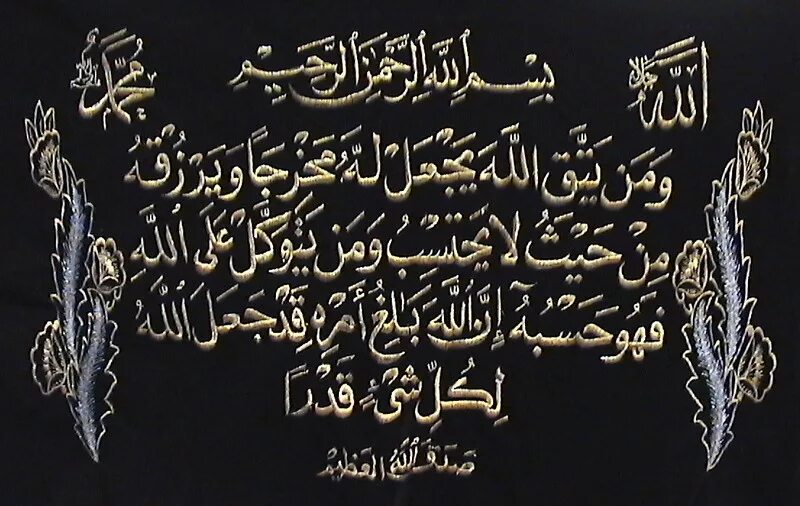 الله جل جلاله
بِسْمِ اللهِ الرَّحْمٰنِ الرَّحِيْمِ
مُحَمَّد
وَمَن يَتَّقِ اللَّهَ يَجْعَلْ لَهُ مَخْرَجًا وَيَرْزُقْهُ
مِنْ حَيْثُ لَا يَحْتَسِبُ وَمَن يَتَوَكَّلْ عَلَى اللَّهِ
فَهُوَ حَسْبُهُ إِنَّ اللَّهَ بَالِغُ أَمْرِهِ قَدْ جَعَلَ اللَّهُ
لِكُلِّ شَيْءٍ قَدْرًا
صَدَقَ اللهُ العَظِيْم